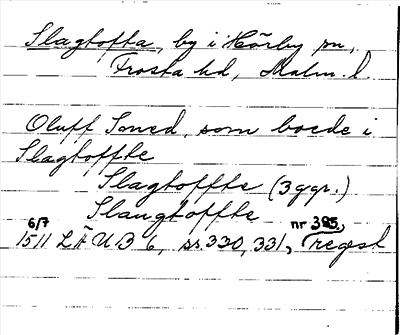 Slagtofta, by i Hörby sn,
Frosta hd, Malm. l.
Oluff Smed, som boede i
Slagtoffte
Slagtoffte (3 ggr.)
Slaugtoffte
6/7 nr 385,
1511 LÄUB 6, ss. 330, 331, regest